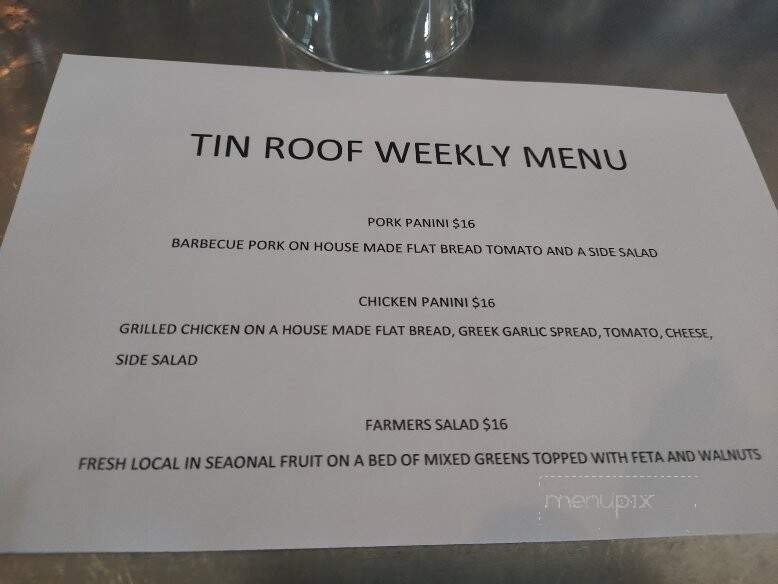 TIN ROOF WEEKLY MENU
PORK PANINI $16
BARBECUE PORK ON HOUSE MADE FLAT BREAD TOMATO AND A SIDE SALAD
CHICKEN PANINI $16
GRILLED CHICKEN ON A HOUSE MADE FLAT BREAD, GREEK GARLIC SPREAD, TOMATO, CHEESE,
SIDE SALAD
FARMERS SALAD $16
FRESH LOCAL IN SEAONAL FRUIT ON A BED OF MIXED GREENS TOPPED WITH FETA AND WALNUTS
menupix